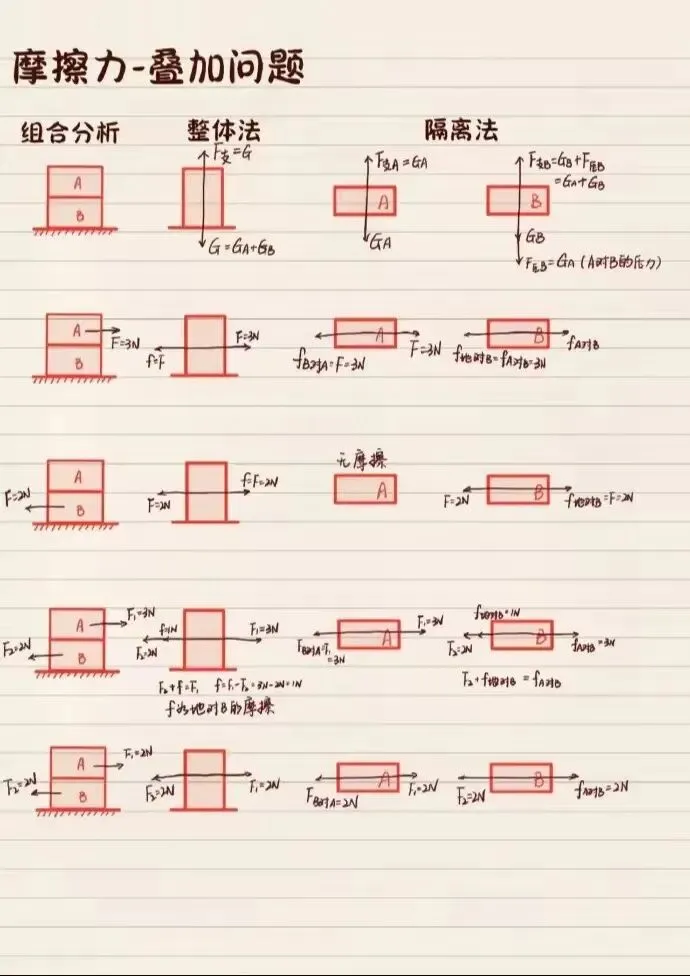 摩擦力-叠加问题
组合分析 整体法 隔离法
A
B
F支=G
G=GA+GB
F支A=GA
A
GA
F支B=GB+F压B
=GA+GB
B
GB
F压B=GA(A对B的压力)
A
F=3N
B
F=3N
f=F
A
fB对A=F=3N
F=3N
B
fA对B
f地对B=fA对B=3N
A
F=2N
B
f=F=2N
F=2N
无摩擦
A
F=2N
B
f地对B=F=2N
F₁=3N
A
F₂=2N
B
f=1N
F₁=3N
F₂=2N
F₂+f=F₁ f=F₁-F₂=3N-2N=1N
f为地对B的摩擦
F₁=3N
A
FB对A=F₁
=3N
f地对B=1N
F₂=2N
B
fA对B=3N
F₂+f地对B=fA对B
A
F₁=2N
F₂=2N
B
F₂=2N
F₁=2N
A
FB对A=2N
F₁=2N
B
F₂=2N
fA对B=2N